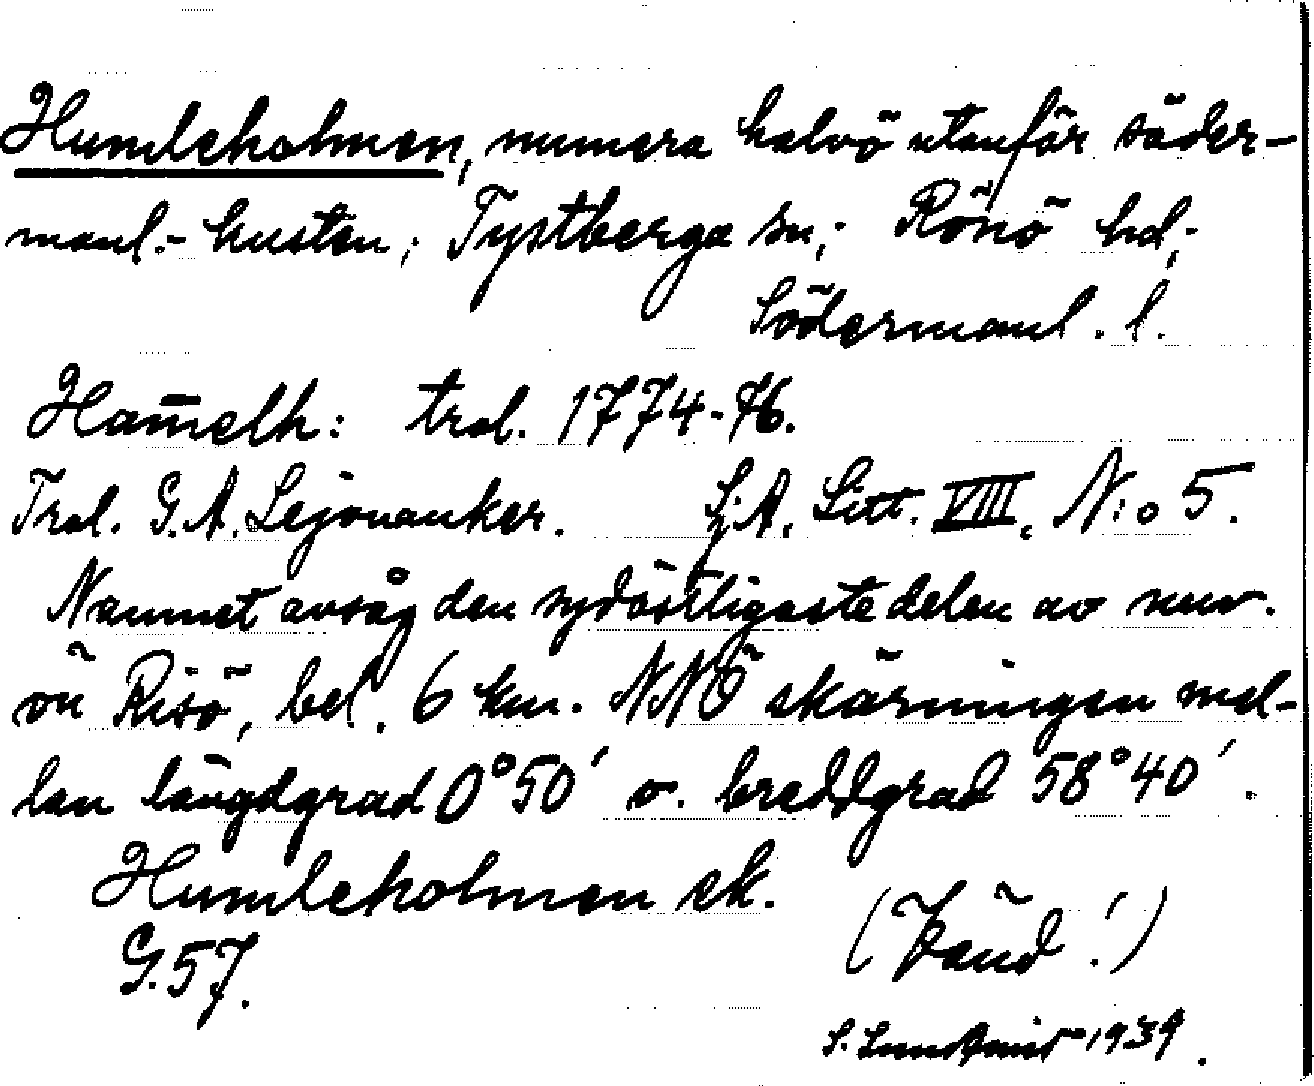 Humleholmen, numera halvö utanför söder-
manl.- kusten; Tystberga sn,; Rönö hd,;
Södermanl. l.
Ham̅elh: trol. 1774-76.
Trol. G. A. Lejonanker. L. A. Litt. VIII. N:o 5.
Namnet avsåg den sydöstligaste delen av nuv.
ön Risö, bel. 6 km. NNÖ skärningen mel-
lan längdgrad 0°50′ o. breddgrad 58°40′.
Humleholmen ek.
G. 57. (Känd!)
S. 1939.